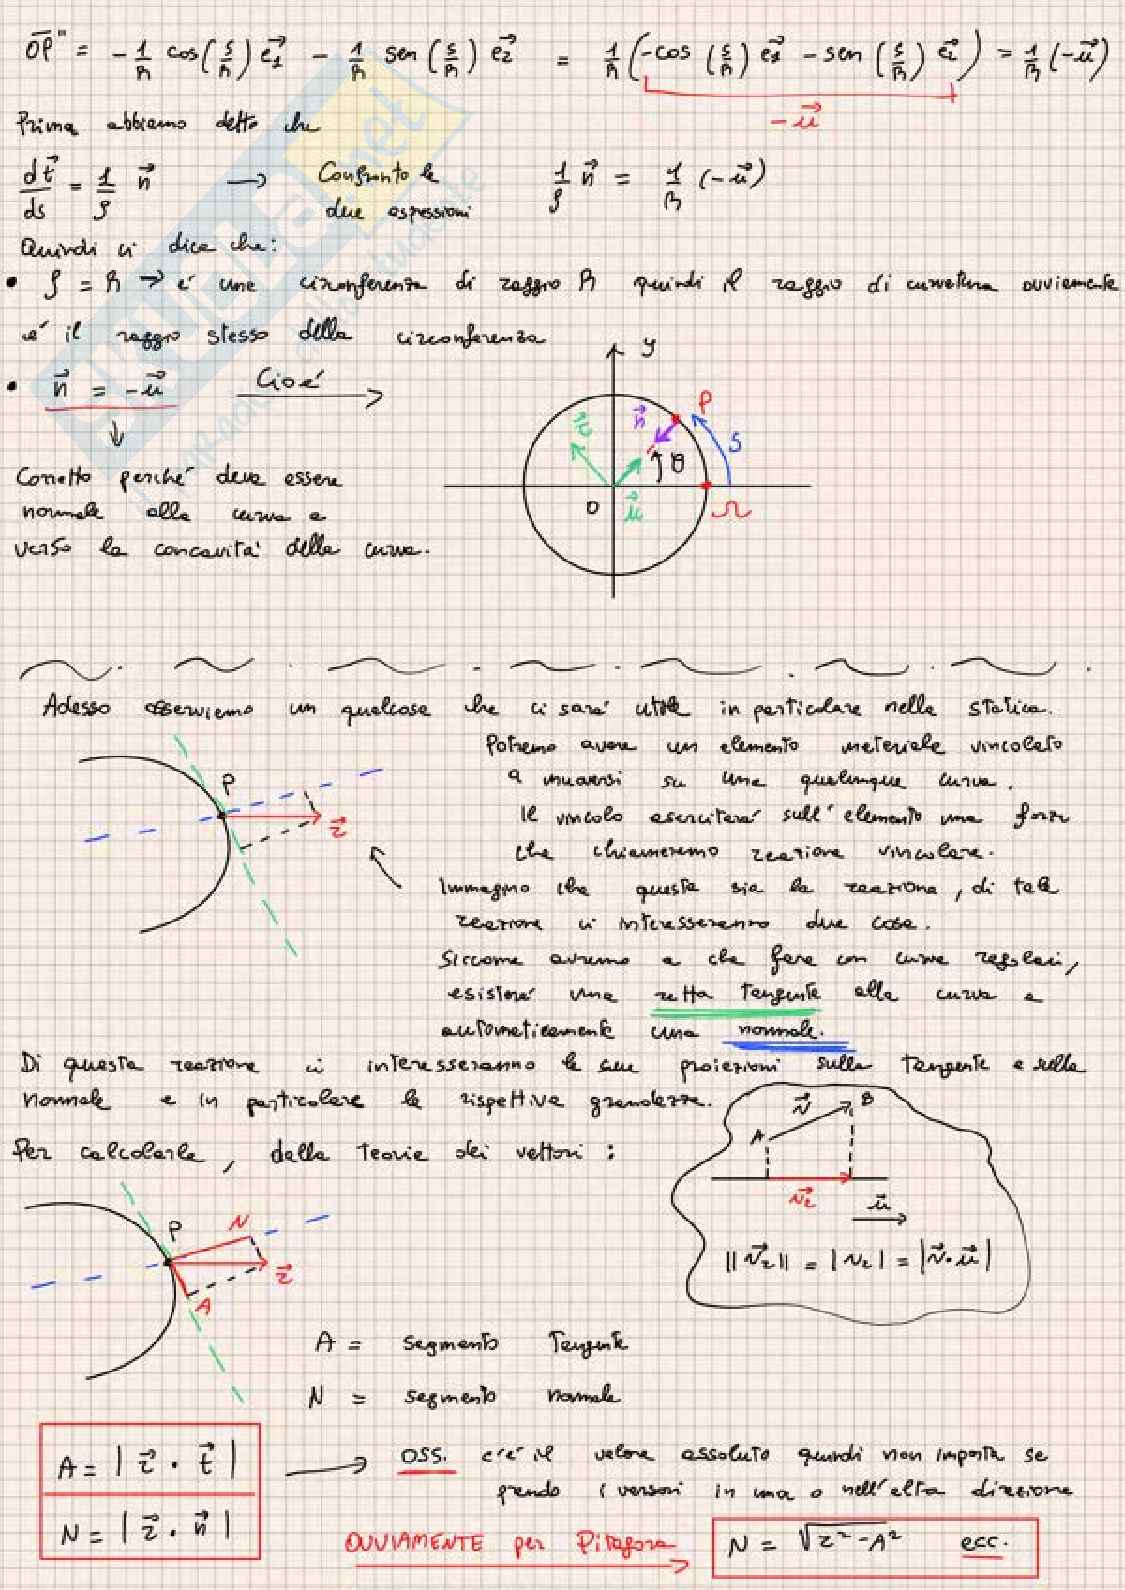 OP'' = - 1/R cos(s/R) e₁ - 1/R sen(s/R) e₂ = 1/R (-cos(s/R) e₁ - sen(s/R) e₂) = 1/R (-u)
-u
Prima abbiamo detto che
dt/ds = 1/ρ n → Confronto le due espressioni 1/ρ n = 1/R (-u)
Quindi ci dice che:
• ρ = R → é une circonferenza di raggio R quindi il raggio di curvatura ovviamente
é il raggio stesso della circonferenza
• n = -u Cioé
Corretto perché deve essere
normale alla curva e
verso la concavità della curva.
y
P
n
t
S
θ
O
u
Ω
Adesso osserviamo un qualcosa che ci sará utile in particolare nella statica.
Potremo avere un elemento materiale vincolato
a muoversi su una qualunque curva.
Il vincolo eserciterá sull'elemento una forza
che chiameremo reazione vincolare.
Immagino che questa sia la reazione, di tale
reazione ci interesseranno due cose.
Siccome avremo a che fare con curve regolari,
esisterá una retta tangente alla curva e
automaticamente una normale.
P
r
Di questa reazione ci interesseranno le sue proiezioni sulla tangente e sulla
normale e in particolare le rispettive grandezze.
Per calcolarle, dalla teoria dei vettori:
A
v
B
v_r
u
||v_r|| = |v_r| = |v·u|
P
N
r
A
A = segmento tangente
N = segmento normale
A = | r · t |
N = | r · n |
OSS. c'é il valore assoluto quindi non importa se
prendo i versori in una o nell'altra direzione
OVVIAMENTE per Pitagora N = √r² - A² ecc.